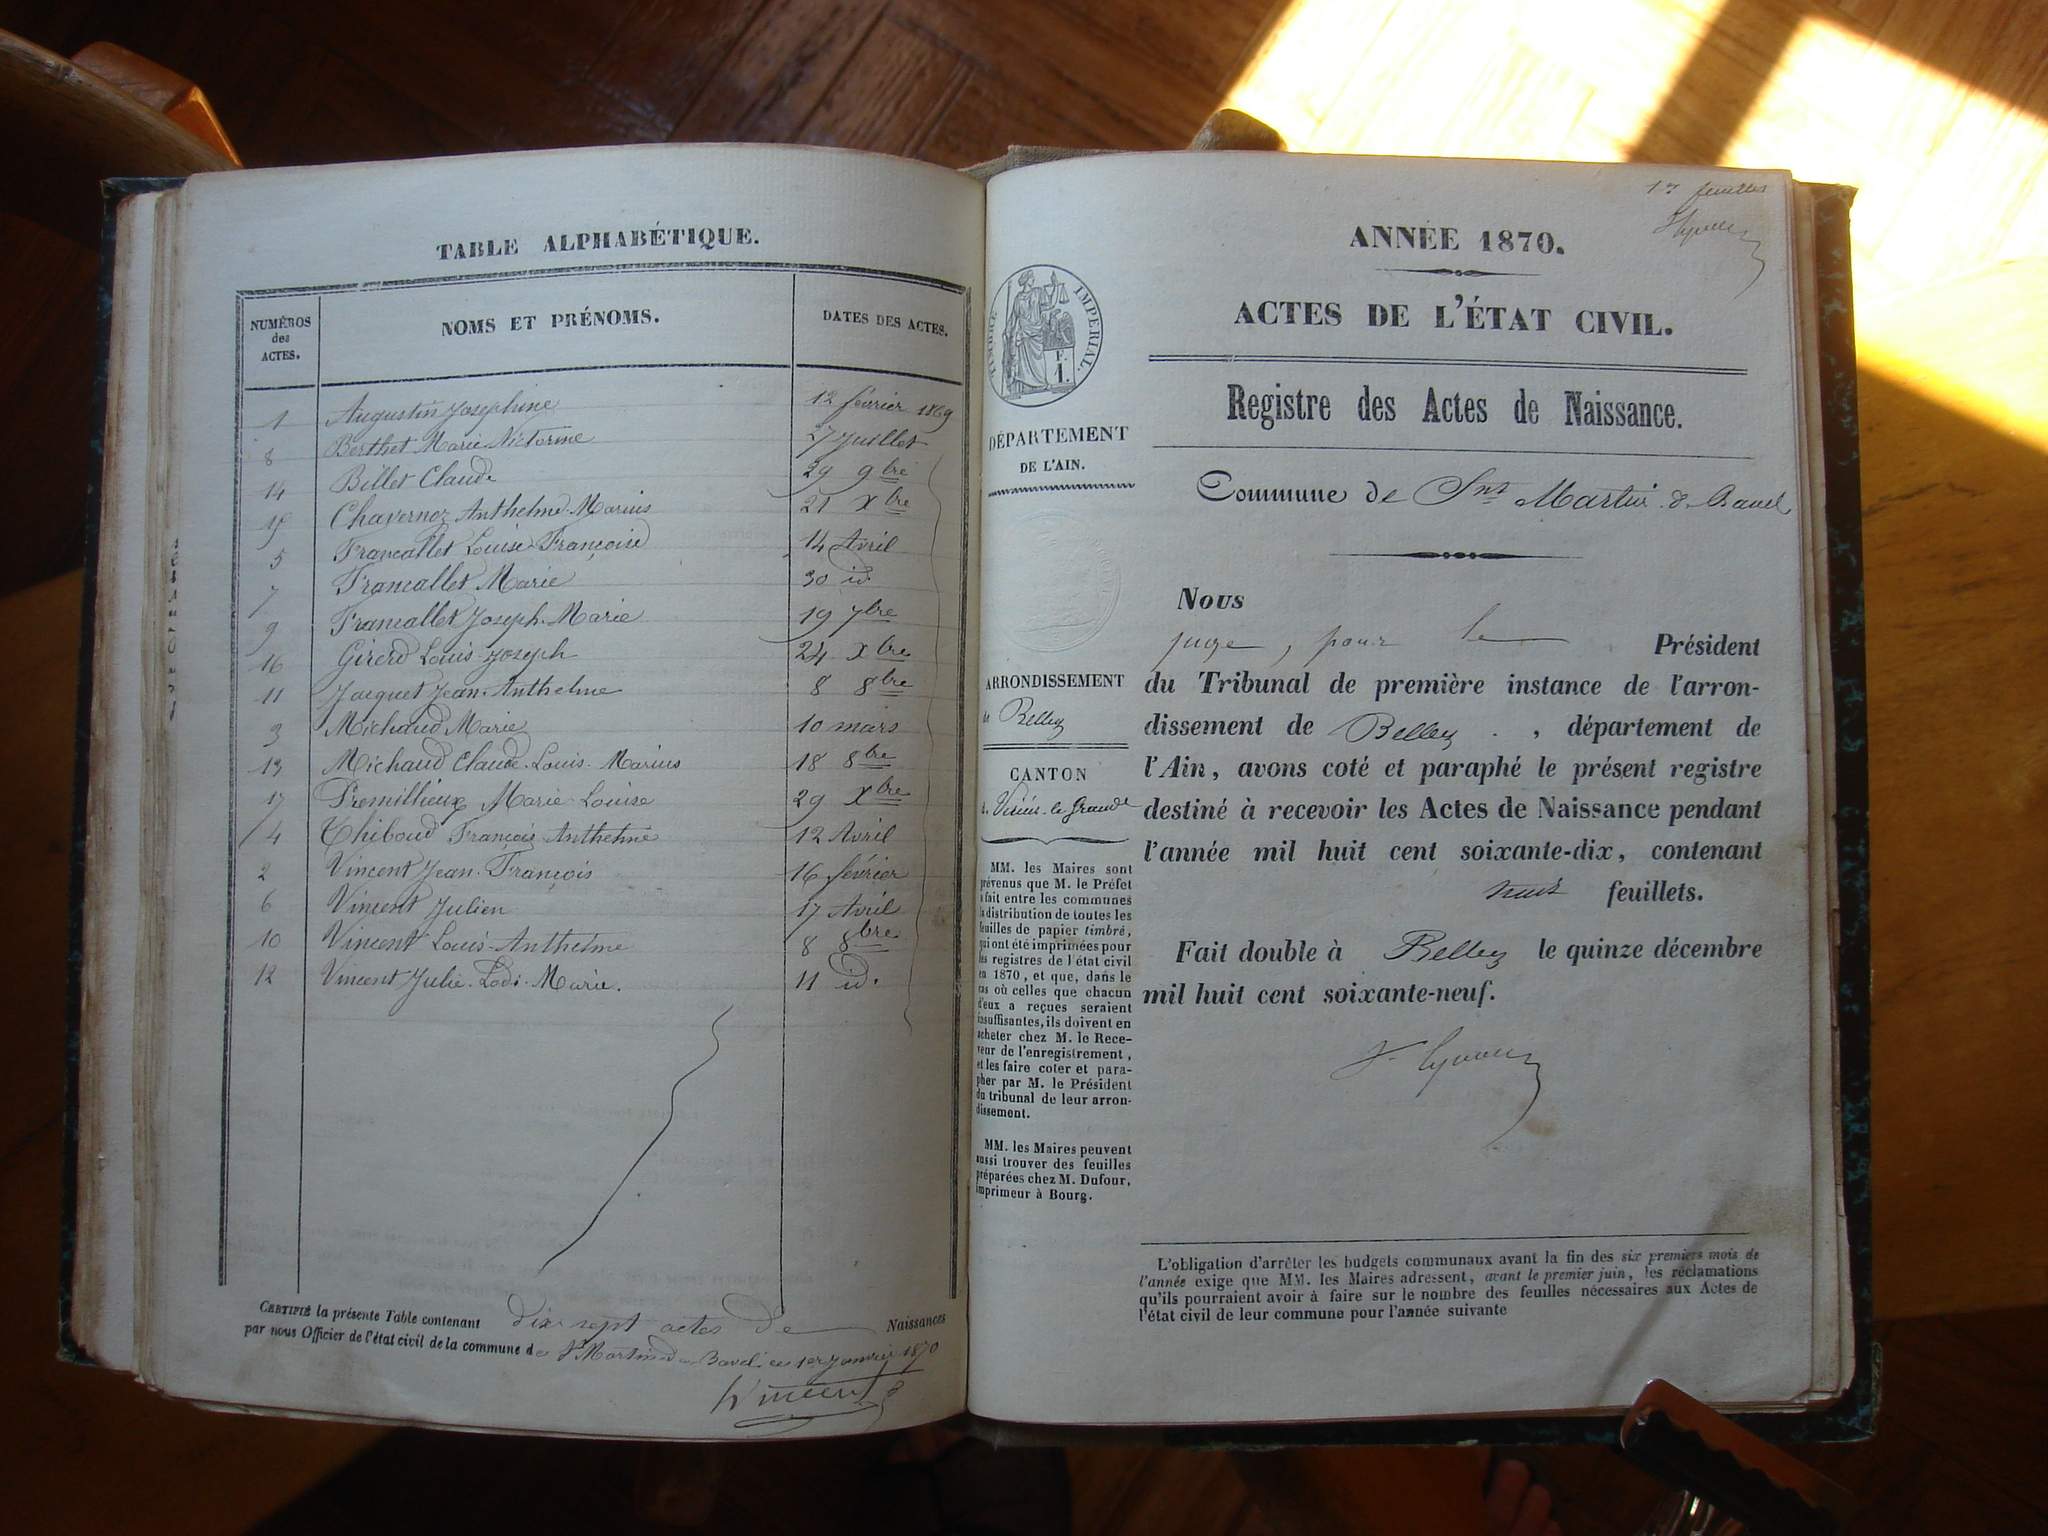 TABLE ALPHABÉTIQUE.
NUMÉROS des ACTES. NOMS ET PRÉNOMS. DATES DES ACTES.
1 Augustin Josephine 12 février 1869
8 Berthet Marie Victorine 27 Juillet
14 Billet Claude 29 9bre
15 Chavernoz Anthelme Marius 21 Xbre
5 Francallet Louise Françoise 14 Avril
7 Francallet Marie 30 id
9 Francallet Joseph-Marie 19 7bre
16 Girerd Louis Joseph 24 Xbre
11 Jacquet Jean-Anthelme 8 8bre
3 Michaud Marie 10 mars
13 Michaud Claude-Louis-Marius 18 8bre
17 Premillieux Marie Louise 29 Xbre
4 Thiboud François-Anthelme 12 Avril
2 Vincent Jean-François 16 février
6 Vincent Julien 17 Avril
10 Vincent Louis-Anthelme 8 8bre
12 Vincent Julie-Lodi-Marie. 11 id.
CERTIFIÉ la présente Table contenant dix sept actes de Naissances
par nous Officier de l'état civil de la commune de St Martin de Bavel ce 1er Janvier 1870
Vincent
feuillets
ANNÉE 1870.
ACTES DE L'ÉTAT CIVIL.
Registre des Actes de Naissance.
TIMBRE IMPERIAL.
F.
1.
DÉPARTEMENT
DE L'AIN.
ARRONDISSEMENT
de Belley
CANTON
de Virieu-le-Grand
MM. les Maires sont
prévenus que M. le Préfet
a fait entre les communes
la distribution de toutes les
feuilles de papier timbré,
qui ont été imprimées pour
les registres de l'état civil
en 1870, et que, dans le
cas où celles que chacun
d'eux a reçues seraient
insuffisantes, ils doivent en
acheter chez M. le Rece-
veur de l'enregistrement,
et les faire coter et para-
pher par M. le Président
du tribunal de leur arron-
dissement.
MM. les Maires peuvent
aussi trouver des feuilles
préparées chez M. Dufour,
imprimeur à Bourg.
Commune de Snt Martin de Bavel
Nous
juge, pour le Président
du Tribunal de première instance de l'arron-
dissement de Belley, département de
l'Ain, avons coté et paraphé le présent registre
destiné à recevoir les Actes de Naissance pendant
l'année mil huit cent soixante-dix, contenant
feuillets.
Fait double à Belley le quinze décembre
mil huit cent soixante-neuf.
L'obligation d'arrêter les budgets communaux avant la fin des six premiers mois de
l'année exige que MM. les Maires adressent, avant le premier juin, les réclamations
qu'ils pourraient avoir à faire sur le nombre des feuilles nécessaires aux Actes de
l'état civil de leur commune pour l'année suivante